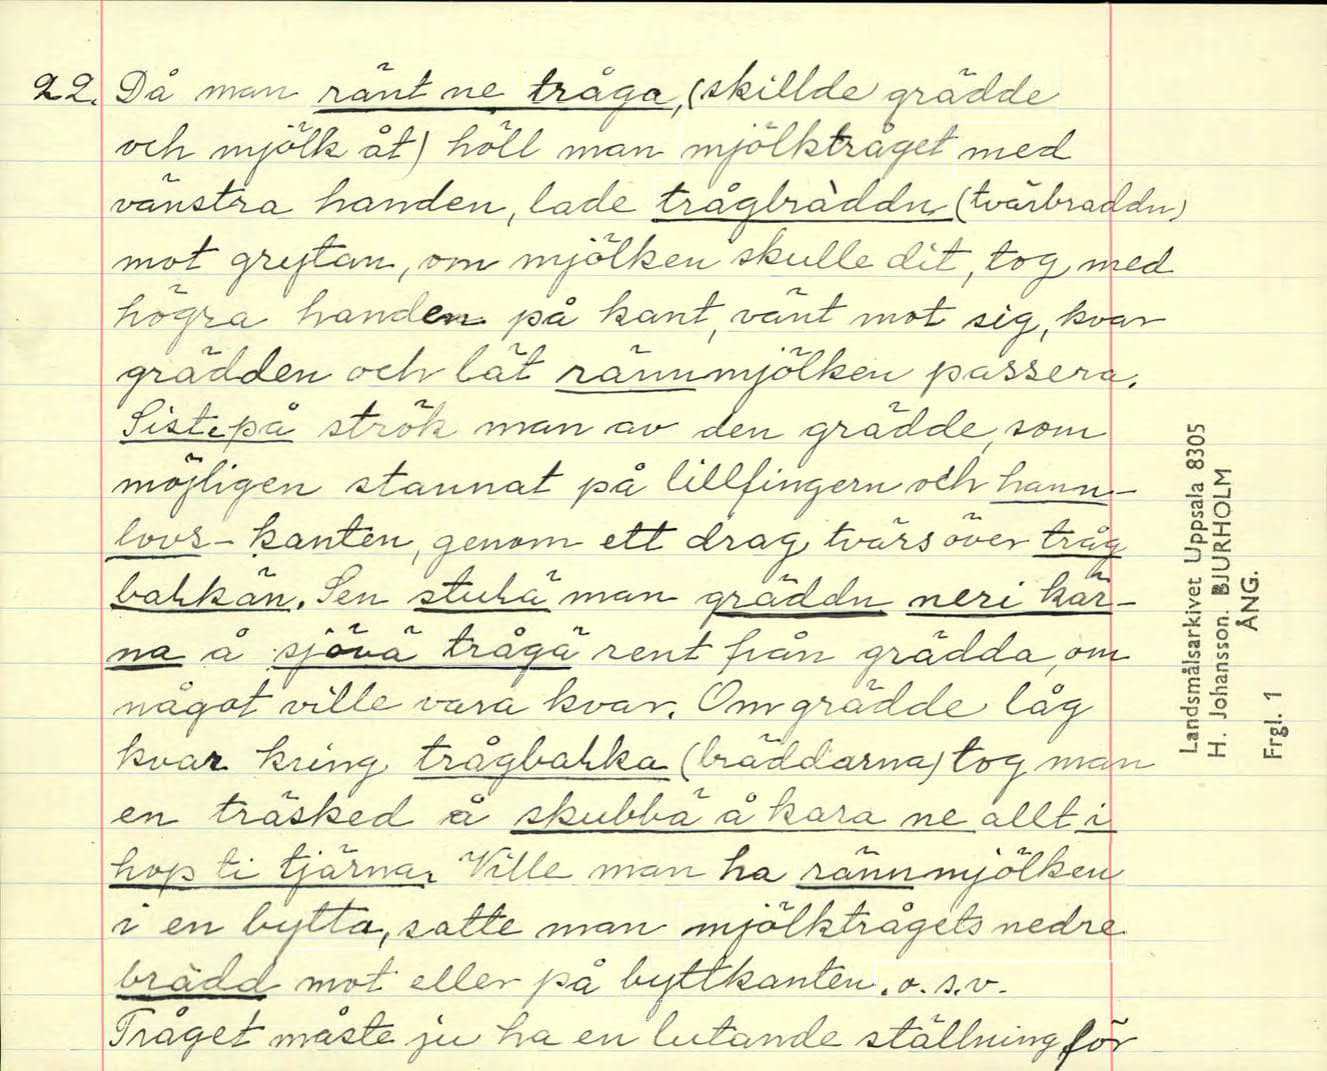 22. Då man ränt ne tråga, (skillde grädde
och mjölk åt) höll man mjölktråget med
vänstra handen, lade trågbräddn (tvärbräddn)
mot grytan, om mjölken skulle dit, tog med
högra handen på kant, vänt mot sig, kvar
grädden och lät rännmjölken passera.
Sistepå strök man av den grädde, som
möjligen stannat på lillfingern och hann-
lovs-kanten, genom ett drag tvärs över tråg
bahkän. Sen stuhä man gräddn neri kär-
na å sjövä trågä rent från grädda, om
något ville vara kvar. Om grädde låg
kvar kring trågbahka (bräddarna) tog man
en träsked å skubbä å kara ne allt i
hop ti tjärna. Ville man ha rännmjölken
i en bytta, satte man mjölktrågets nedre
brädd mot eller på byttkanten. o.s.v.
Tråget måste ju ha en lutande ställning för
Landsmålsarkivet Uppsala 8305
H. Johansson. BJURHOLM
ÅNG.
Frgl. 1